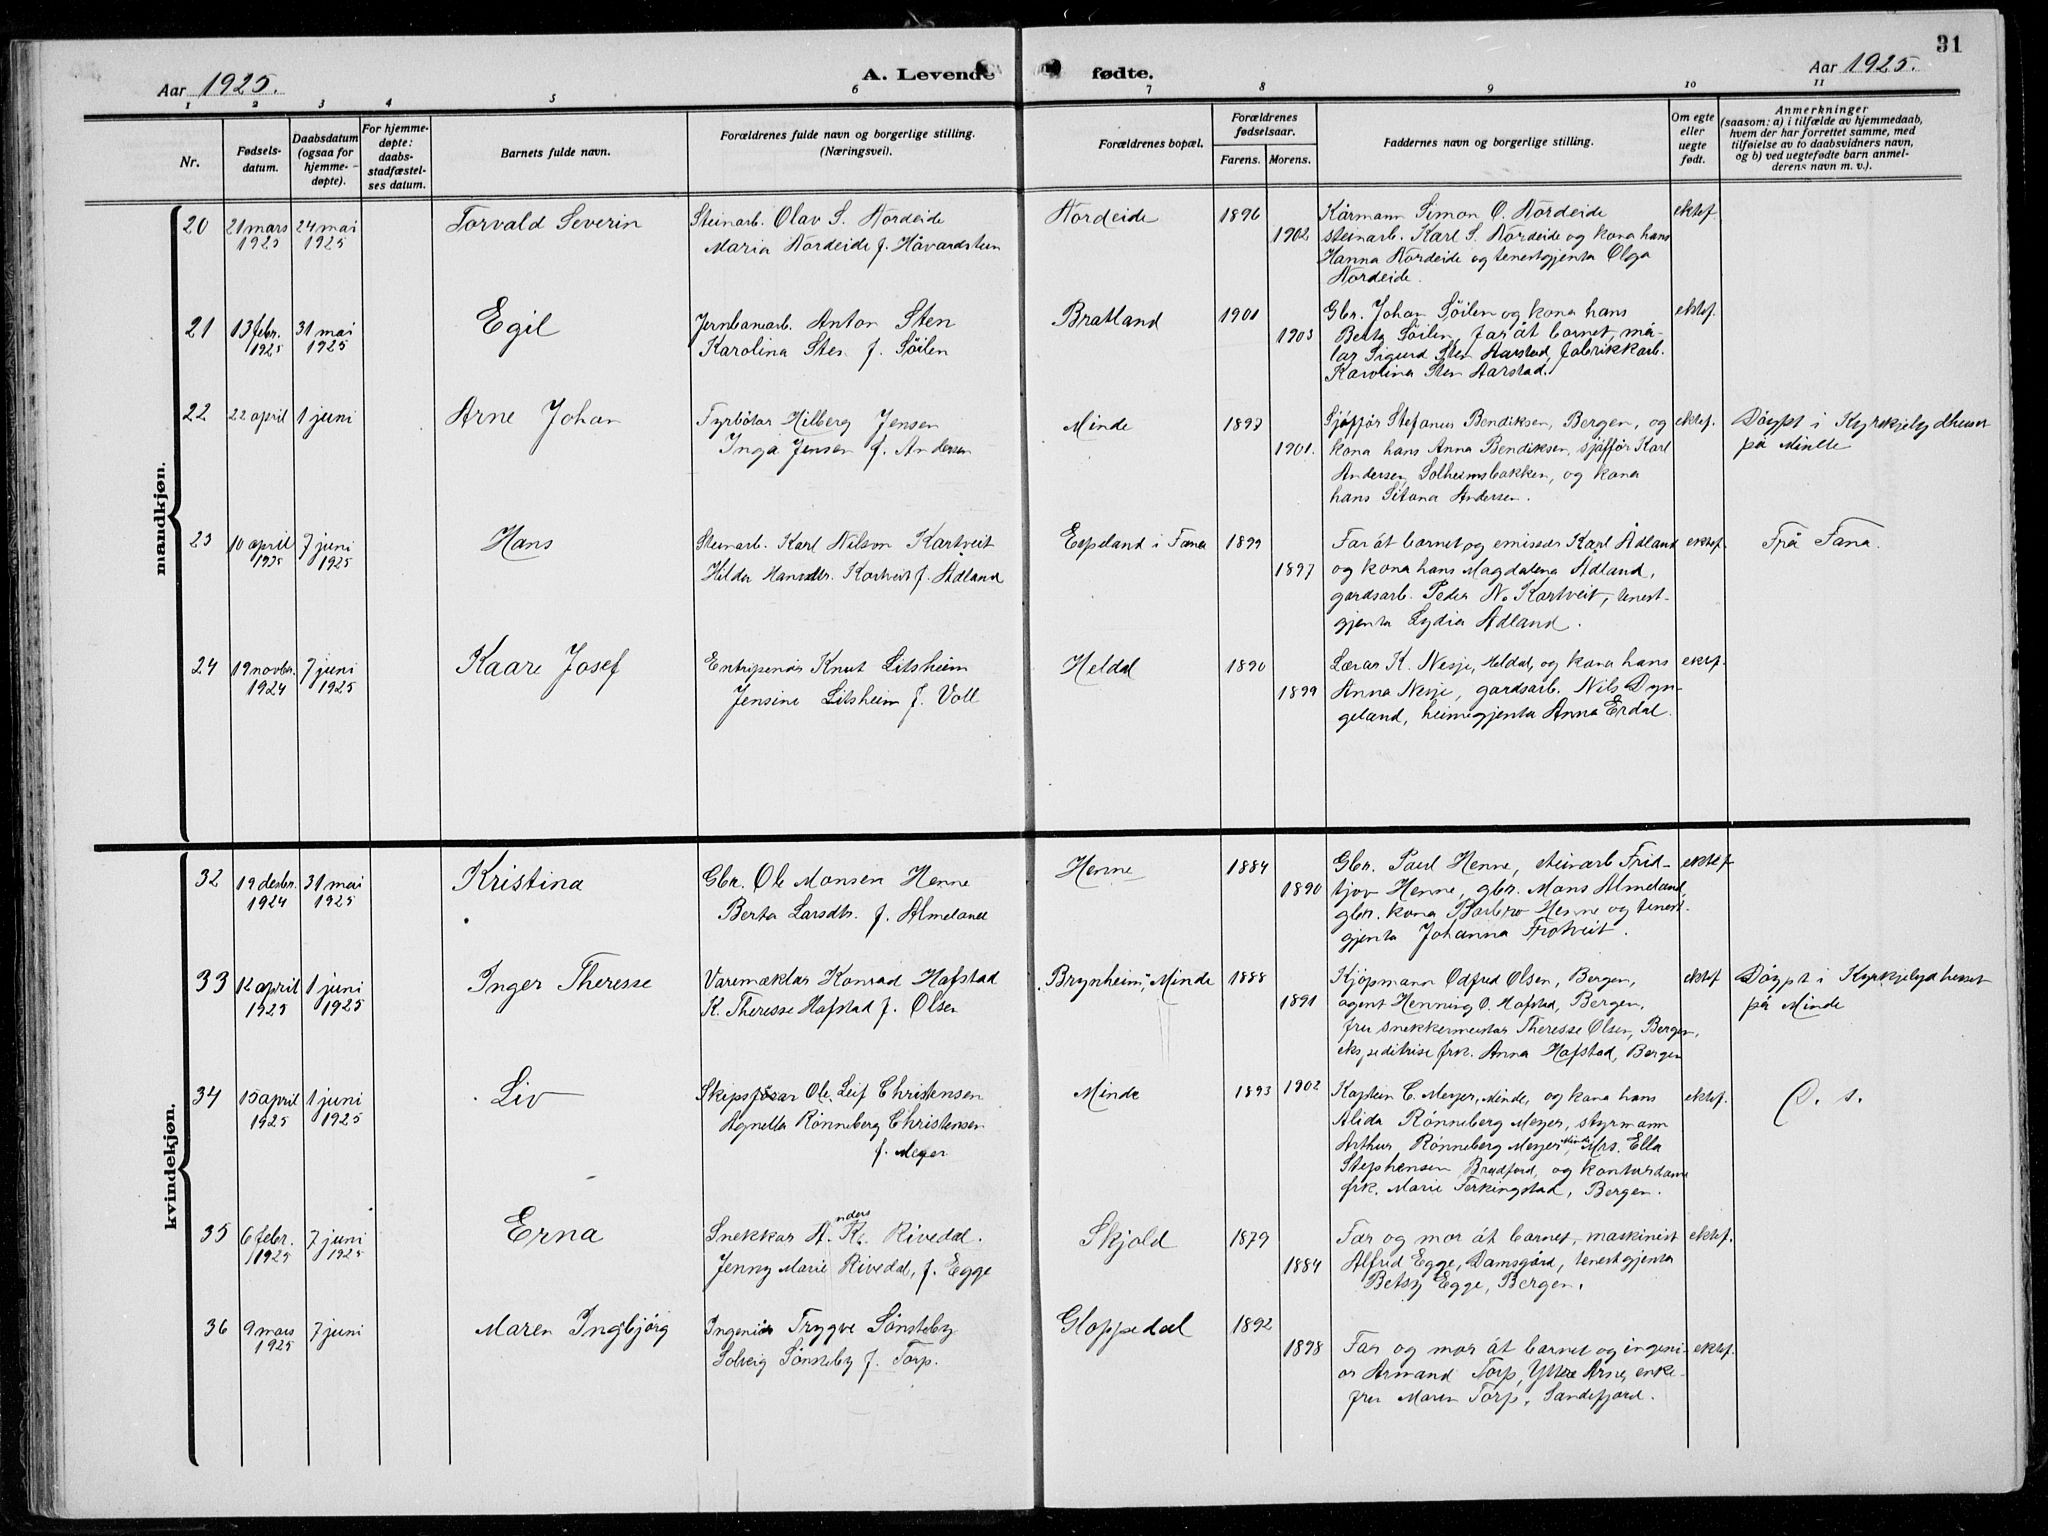 31
Aar 1925.
A. Levende fødte.
Aar 1925.
1 2 3 4 5 6 7 8 9 10 11
Nr.
Fødselsdatum.
Daabsdatum (ogsaa for hjemmedøpte).
For hjemmedøpte: daabsstadfæstelses datum.
Barnets fulde navn.
Forældrenes fulde navn og borgerlige stilling.
(Næringsvei).
Forældrenes bopæl.
Forældrenes fødselsaar.
Farens. Morens.
Faddernes navn og borgerlige stilling.
Om egte eller uegte født.
Anmerkninger
(saasom: a) i tilfælde av hjemmedaab,
hvem der har forrettet samme, med
tilføielse av to daabsvidners navn,
og b) ved uegtefødte barn anmelderens navn m. v.).
mandkjøn.
20 21 mars 1925 24 mai 1925 Torvald Severin
Steinarb. Olav S. Nordeide
Maria Nordeide f. Håvardstun
Nordeide 1896 1902
Kårmann Simon O. Nordeide
steinarb. Karl S. Nordeide og kona hans
Hanna Nordeide og tenestgjenta Olga
Nordeide.
ektef.
21 13 febr. 1925 31 mai 1925 Egil
Jernbanearb. Anton Sten
Karolina Sten f. Søilen
Bratland 1901 1903
Gbr. Johan Søilen og kona hans
Berta Søilen, far åt barnet, må-
lar Sigurd Sten Aarstad, fabrikkarb.
Karolina Sten Aarstad.
ektef.
22 22 april 1 juni Arne Johan
Fyrbøtar Hilberg Jensen
Inga Jensen f. Andersen
Minde 1897 1901.
Sjåffør Stefanus Bendiksen, Bergen, og
kona hans Anna Bendiksen, sjåffør Karl
Andersen, Solheimsbakken, og kona
hans Sitona Andersen.
ektef.
Døypt i Kyrkjelydhuset
på Minde
23 10 april 1925 7 juni 1925 Hans
Steinarb. Karl Nilson Kartveit
Hilda Hansdtr. Kartveit f. Ådland
Espeland i Fana 1899 1897
Far åt barnet og emissær Karl Ådland
og kona hans Magdalena Ådland,
gardsarb. Peder N. Kartveit, tenest-
gjenta Lydia Ådland.
ektef.
Frå Fana.
24 19 novbr. 1924 7 juni 1925 Kaare Josef
Entripenør Knut Litsheim
Jensine Litsheim f. Voll
Heldal 1890 1899
Lærar K. Nesje, Heldal, og kona hans
Anna Nesje, gardsarb. Nils Dyn-
geland, heimegjenta Anna Erdal.
ektef.
kvindekjøn.
32 19 desbr. 1924 31 mai 1925 Kristina
Gbr. Ole Monsen Henne
Berta Larsdtr. f. Almeland
Henne 1884 1890
Gbr. Paul Henne, steinarb Frid-
tjov Henne, gbr. Mons Almeland,
gbr. kona Barbro Henne og tenest-
gjenta Johanna Frotveit.
ektef
33 12 april 1925 1 juni 1925 Inger Theresse
Varemæklar Konrad Hafstad
K. Theresse Hafstad f. Olsen
"Brynheim", Minde 1888 1891
Kjøpmann Odfred Olsen, Bergen,
agent Henning O. Hafstad, Bergen,
fru snekkermeistar Theresse Olsen, Bergen,
ekspeditrise frk. Anna Hafstad, Bergen
ektef
Døypt i Kyrkjelydhuset
på Minde
34 15 april 1925 1 juni 1925 Liv
Skipsførar Ole Leif Christensen
Agnella Rønneberg Christensen
f. Meyer
Minde 1893 1902
Kaptein C. Meyer, Minde, og kona hans
Alida Rønneberg Meyer, styrmann
Arthur Rønneberg Meyer, Minde, Mrs. Ella
Stephensen Bradford, og kontordame
frk. Marie Ferkingstad, Bergen.
ektef.
D. s.
35 6 febr. 1925 7 juni 1925 Erna
Snekkar Anders K. Rivedal.
Jenny Marie Rivedal, f. Egge
Skjold 1879 1884
Far og mor åt barnet, maskinist
Alfred Egge, Damsgård, tenestgjenta
Betsy Egge, Bergen.
ektef.
36 9 mars 1925 7 juni Maren Ingbjørg
Ingeniør Trygve Sønsteby
Solveig Sønsteby f. Torp.
Gloppedal 1892 1898
Far og mor åt barnet og ingeni-
ør Armand Torp, Yttre Arne, enke-
fru Maren Torp, Sandefjord.
ektef.